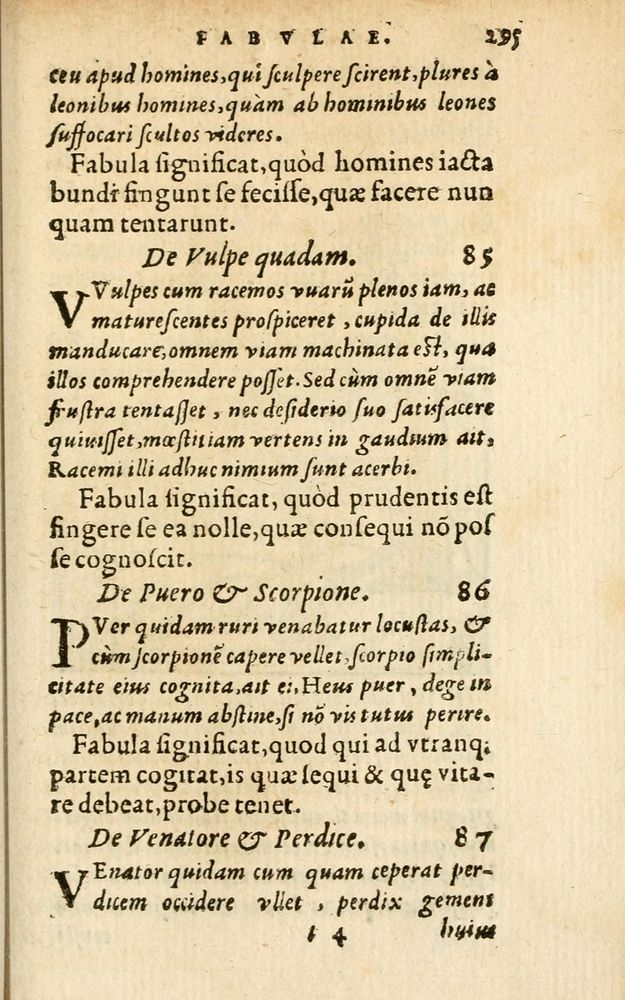 FABVLAE. 295
ceu apud homines,qui ſculpere ſcirent,plures à
leonibus homines,quàm ab hominibus leones
ſuffocari ſcultos videres.
Fabula ſignificat,quòd homines iacta
bundi fingunt ſe feciſſe,quæ facere nun
quam tentarunt.
De Vulpe quadam. 85
VVulpes cum racemos vuarū plenos iam, ac
matureſcentes proſpiceret , cupida de illis
manducare,omnem viam machinata eſt, qua
illos comprehendere poſſet. Sed cùm omnē viam
fruſtra tentaſſet , nec deſiderio ſuo ſatisfacere
quiuiſſet,mœſtitiam vertens in gaudium ait.
Racemi illi adhuc nimium ſunt acerbi.
Fabula ſignificat, quòd prudentis eſt
fingere ſe ea nolle,quæ conſequi nō poſ
ſe cognoſcit.
De Puero & Scorpione. 86
PVer quidam ruri venabatur locuſtas, &
cùm ſcorpionē capere vellet,ſcorpio ſimpli-
citate eius cognita,ait ei,Heus puer, dege in
pace,ac manum abſtine,ſi nō vis tutus perire.
Fabula ſignificat,quod qui ad vtranq;
partem cogitat,is quæ ſequi & quę vita-
re debeat,probe tenet.
De Venatore & Perdice. 87
VEnator quidam cum quam ceperat per-
dicem occidere vllet , perdix gemens
4 huius